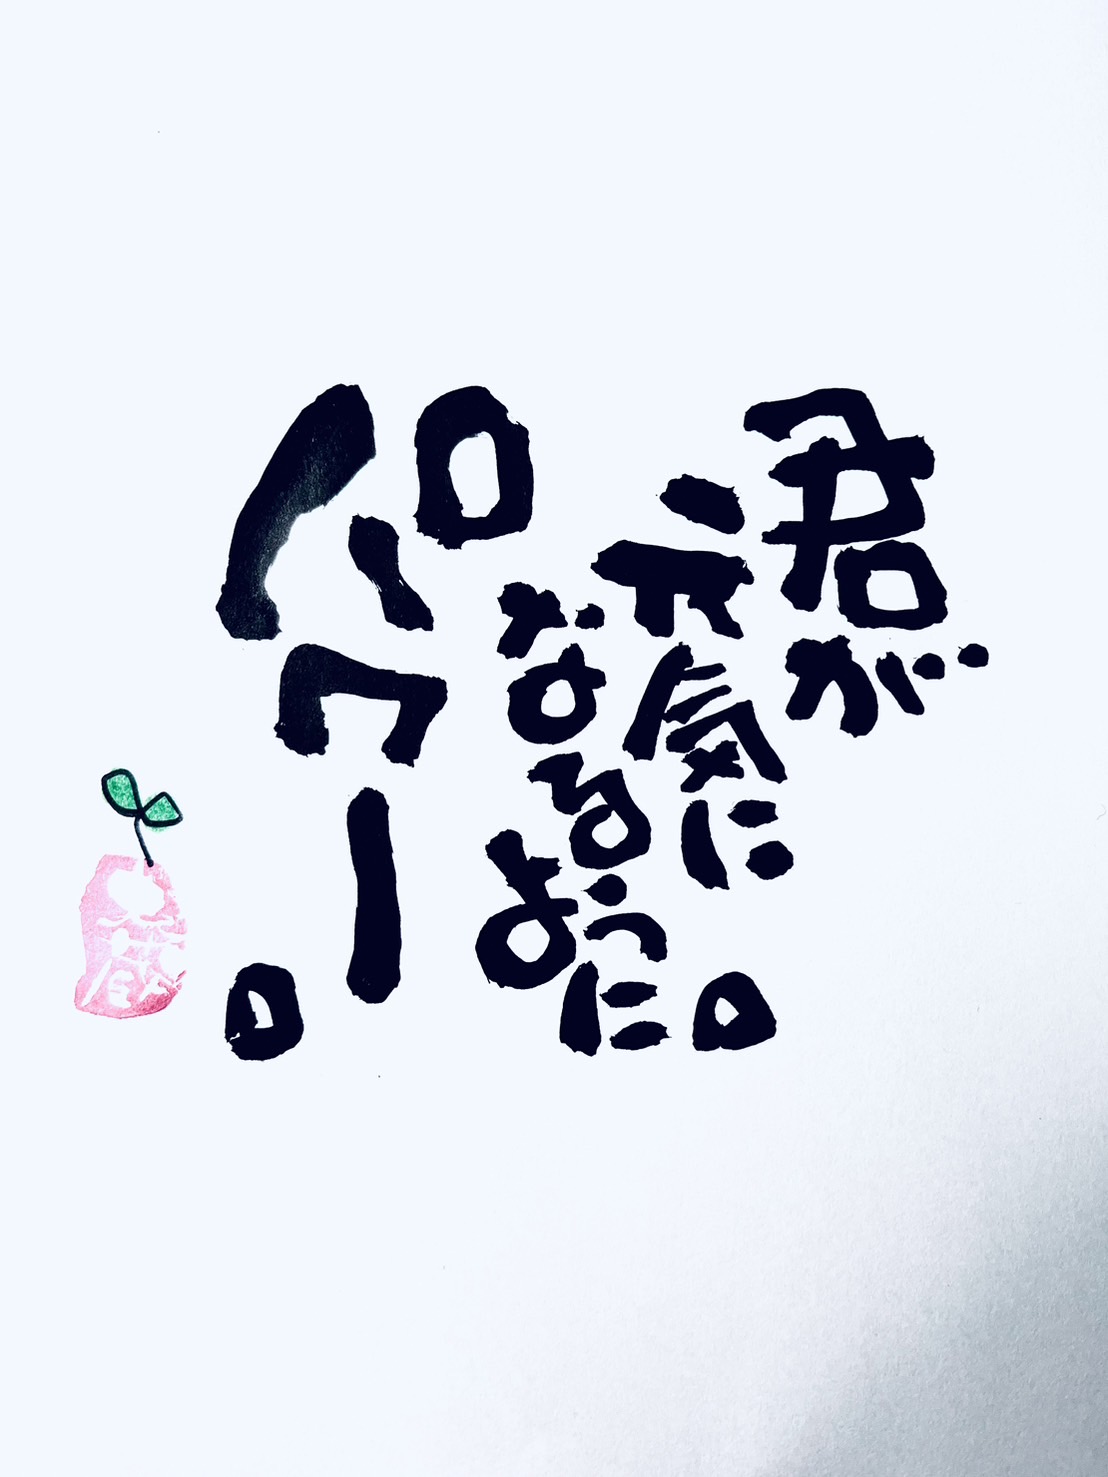 君が
元気に
なるように。
パワー。